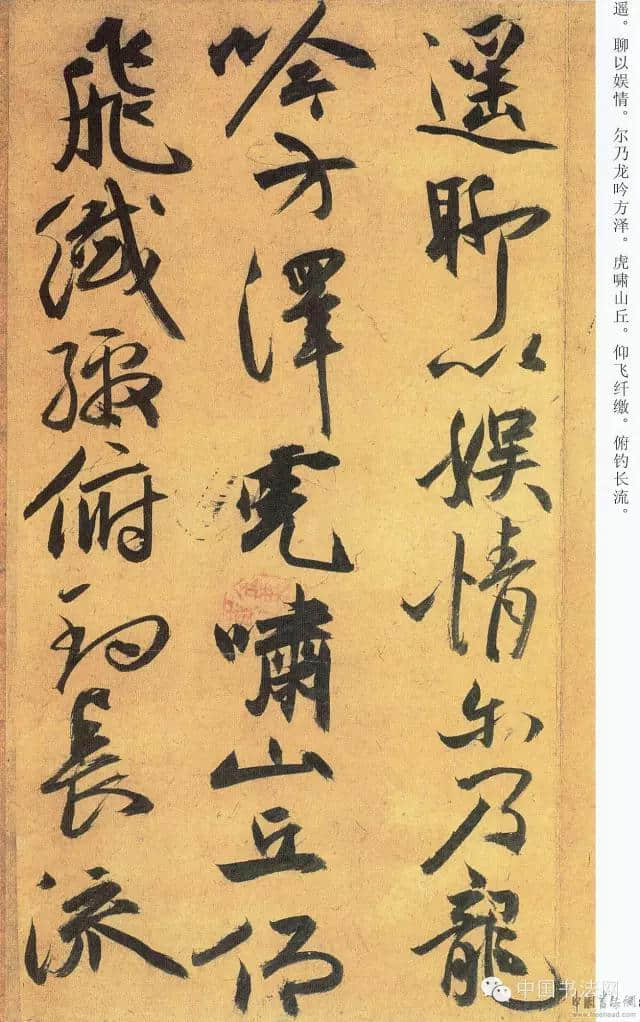 遥。聊以娱情。尔乃龙吟方泽。虎啸山丘。仰飞纤缴。俯钓长流。
遥聊以娱情尔乃龍
吟方澤虎嘯山丘仰
飛纖繳俯釣長流
中国书法网
中國書法網
www.freehead.com